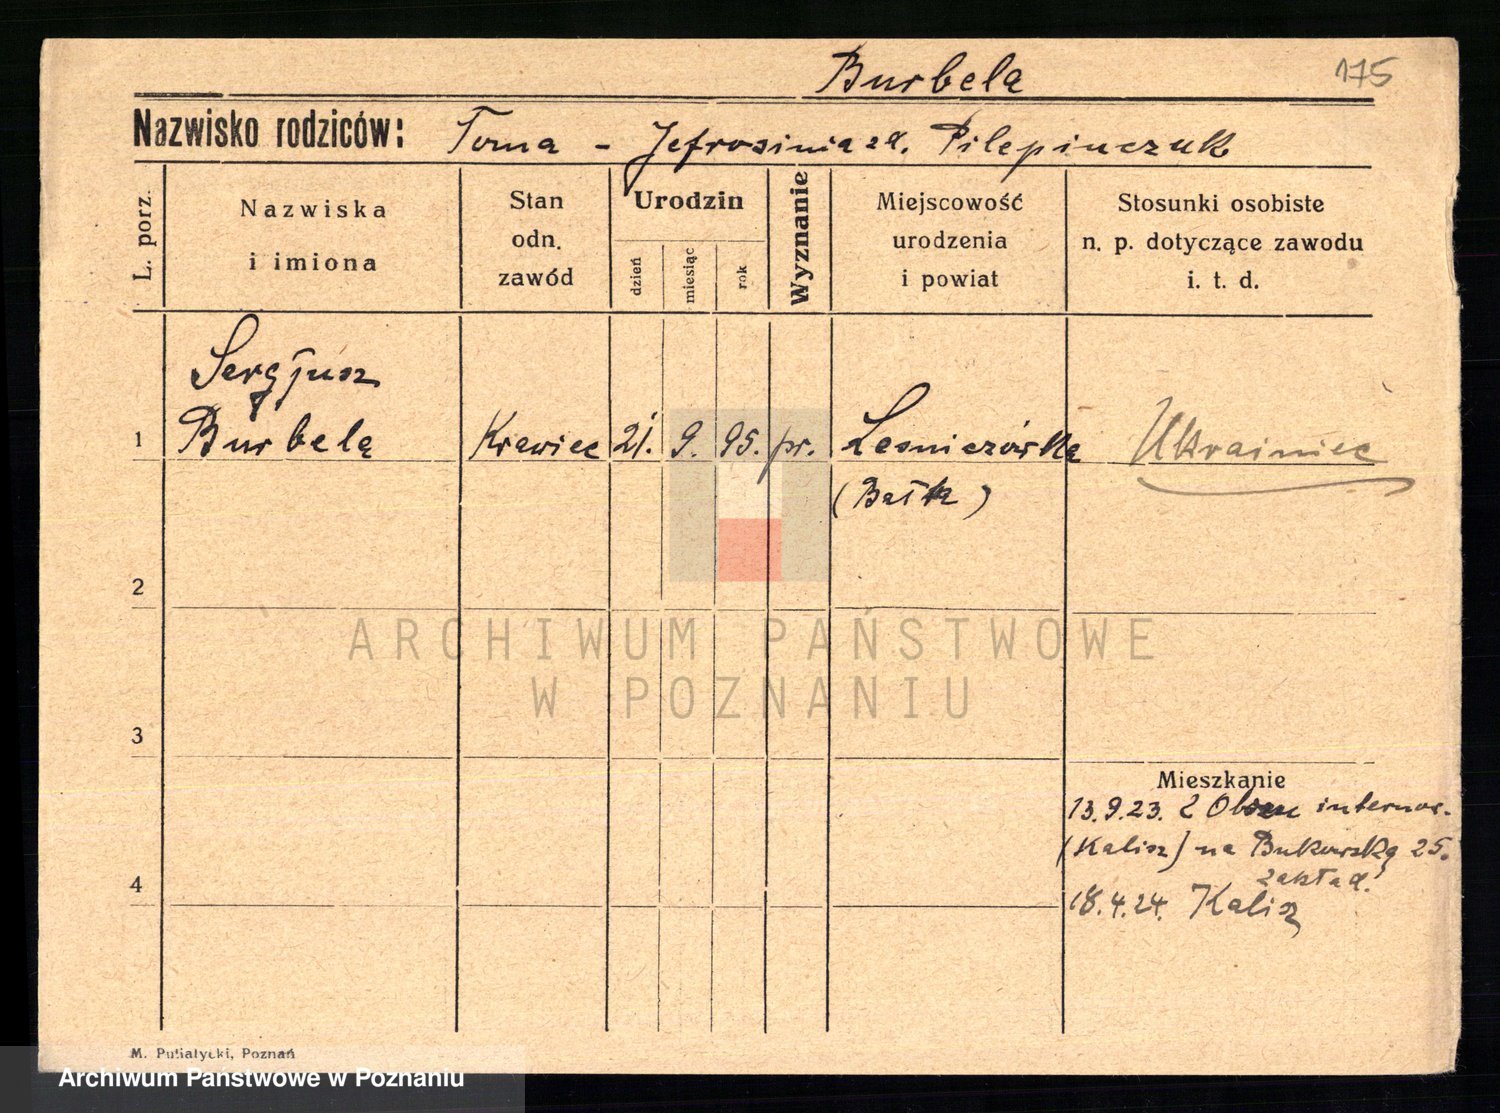 Burbela 175
Nazwisko rodziców: Toma - Jefrosinia zd. Pilepinczuk
L. porz.
Nazwiska
i imiona
Stan
odn.
zawód
Urodzin
dzień
miesiąc
rok
Wyznanie
Miejscowość
urodzenia
i powiat
Stosunki osobiste
n. p. dotyczące zawodu
i. t. d.
Sergjusz
1 Burbela Krawiec 21. 9. 95. pr. Lesniczówka Ukrainiec
(Bałk)
2
ARCHIWUM PAŃSTWOWE
W POZNANIU
3
Mieszkanie
13.9.23. Z Obozu internow.
(Kalisz) na Bukowską 25.
zakład.
4
18.4.24. Kalisz
M. Putiatycki, Poznań
Archiwum Państwowe w Poznaniu